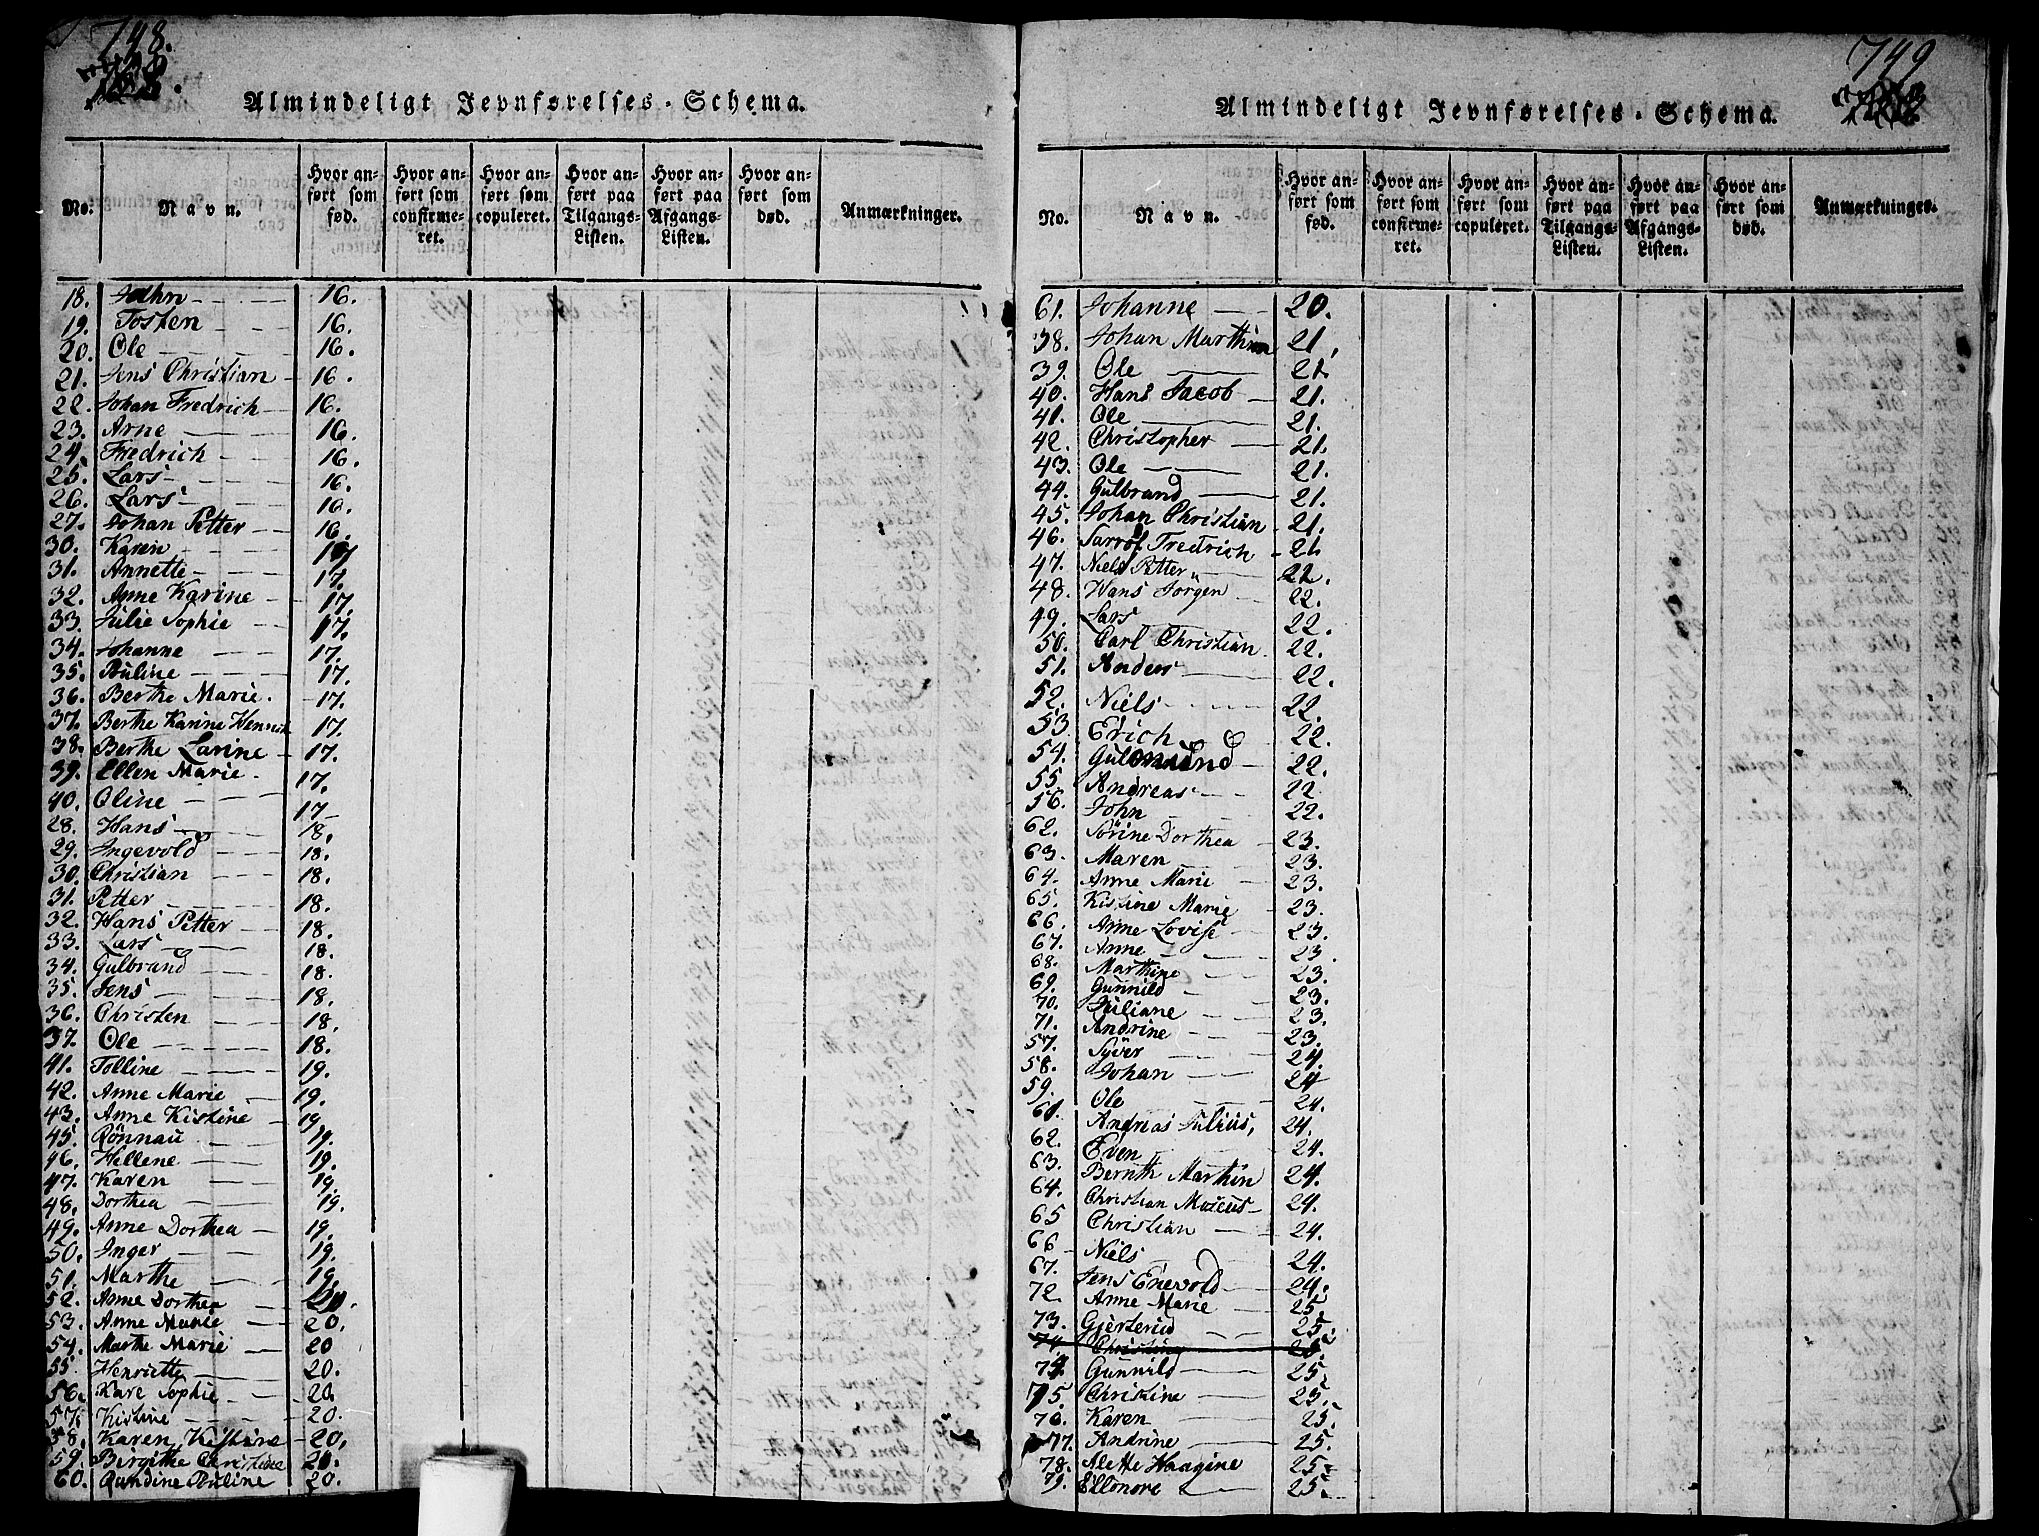 748.
Almindeligt Jevnførelses-Schema.
No. Navn. Hvor anført som fød. Hvor anført som confirmeret. Hvor anført som copuleret. Hvor anført paa Tilgangs-Listen. Hvor anført paa Afgangs-Listen. Hvor anført som død. Anmærkninger.
18. John 16.
19. Tosten 16.
20. Ole 16.
21. Jens Christian 16.
22. Johan Fredrich 16.
23. Arne 16.
24. Fredrich 16.
25. Lars 16.
26. Lars 16.
27. Johan Petter 16.
30. Karen 17
31. Annette 17.
32. Anne Karine 17.
33. Julie Sophie 17.
34. Johanne 17.
35. Pauline 17.
36. Berthe Marie. 17.
37. Berthe Karine Henrich 17.
38. Berthe Larine 17.
39. Ellen Marie. 17.
40. Oline 17
28. Hans 18.
29. Ingevold 18.
30. Christian 18.
31. Petter 18.
32. Hans Petter 18.
33. Lars 18.
34. Gulbrand 18.
35. Jens 18.
36. Christen 18.
37. Ole 18.
41. Tolline 19.
42. Anne Marie 19.
43. Anne Kistine 19.
45. Rönnau 19.
46. Hellene 19.
47. Karen 19.
48. Dorthea 19.
49. Anne Dorthea 19.
50. Inger 19.
51. Marthe 19.
52. Anne Dorthea 20.
53. Anne Marie 20.
54. Marthe Marie 20
55. Henriette 20.
56. Kare Sophie 20.
57. Kistine 20.
58. Karen Kistine 20.
59. Birgithe Christine 20.
60. Randine Pauline 20.
749
Almindeligt Jevnførelses-Schema.
No. Navn. Hvor anført som fød. Hvor anført som confirmeret. Hvor anført som copuleret. Hvor anført paa Tilgangs-Listen. Hvor anført paa Afgangs-Listen. Hvor anført som død. Anmærkninger.
61. Johanne 20.
38. Johan Marthin 21.
39. Ole 21.
40. Hans Jacob 21.
41. Ole 21.
42. Christopher 21.
43. Ole 21.
44. Gulbrand 21.
45. Johan Christian 21.
46. Fredrich 21
47. Niels Petter 22.
48. Hans Jörgen 22.
49. Lars 22.
50. Carl Christian 22.
51. Anders 22.
52. Niels 22.
53 Erich 22.
54. 22.
55. Andreas 22
56. John 22.
62. Sörine Dorthea 23.
63. Maren 23.
64. Anne Marie 23.
65. Kistine Marie 23.
66. Anne Lovise 23.
67. Anne 23.
68. Marthine 23.
69. Gunnild 23.
70. Juliane 23.
71. Andrine 23.
57. Syver 24.
58. Johan 24
59. Ole 24.
61. Andreas Julius, 24.
62. Even 24.
63. Bernth Marthin 24.
64. Christian Marcus 24.
65 Christian 24.
66 Niels 24.
67. Jens Enevold 24.
72. Anne Marie 25
73. Gjertrud 25.
74 Christine 25.
74. Gunnild 25.
75. Christine 25.
76. Karen 25.
77. Andrine 25.
78. Alette Haagine 25.
79. Ellonore 25.